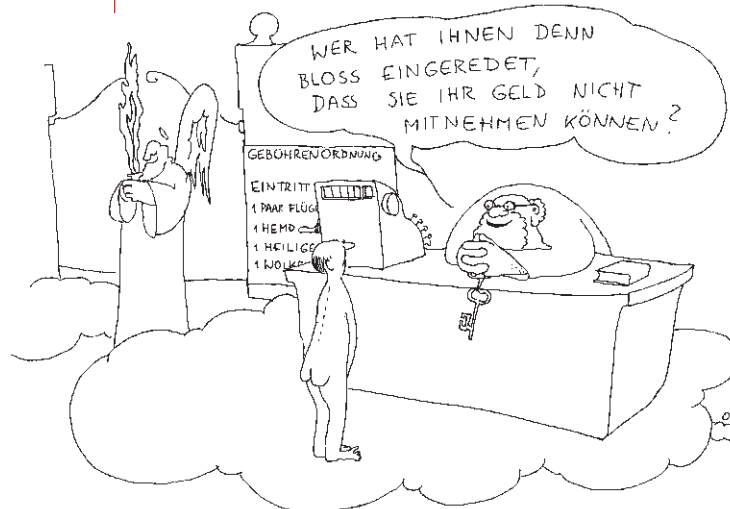 WER HAT IHNEN DENN
BLOSS EINGEREDET,
DASS SIE IHR GELD NICHT
MITNEHMEN KÖNNEN?
GEBÜHRENORDNUNG
EINTRITT
1 PAAR FLÜG
1 HEMD
1 HEILIGE
1 WOLKE